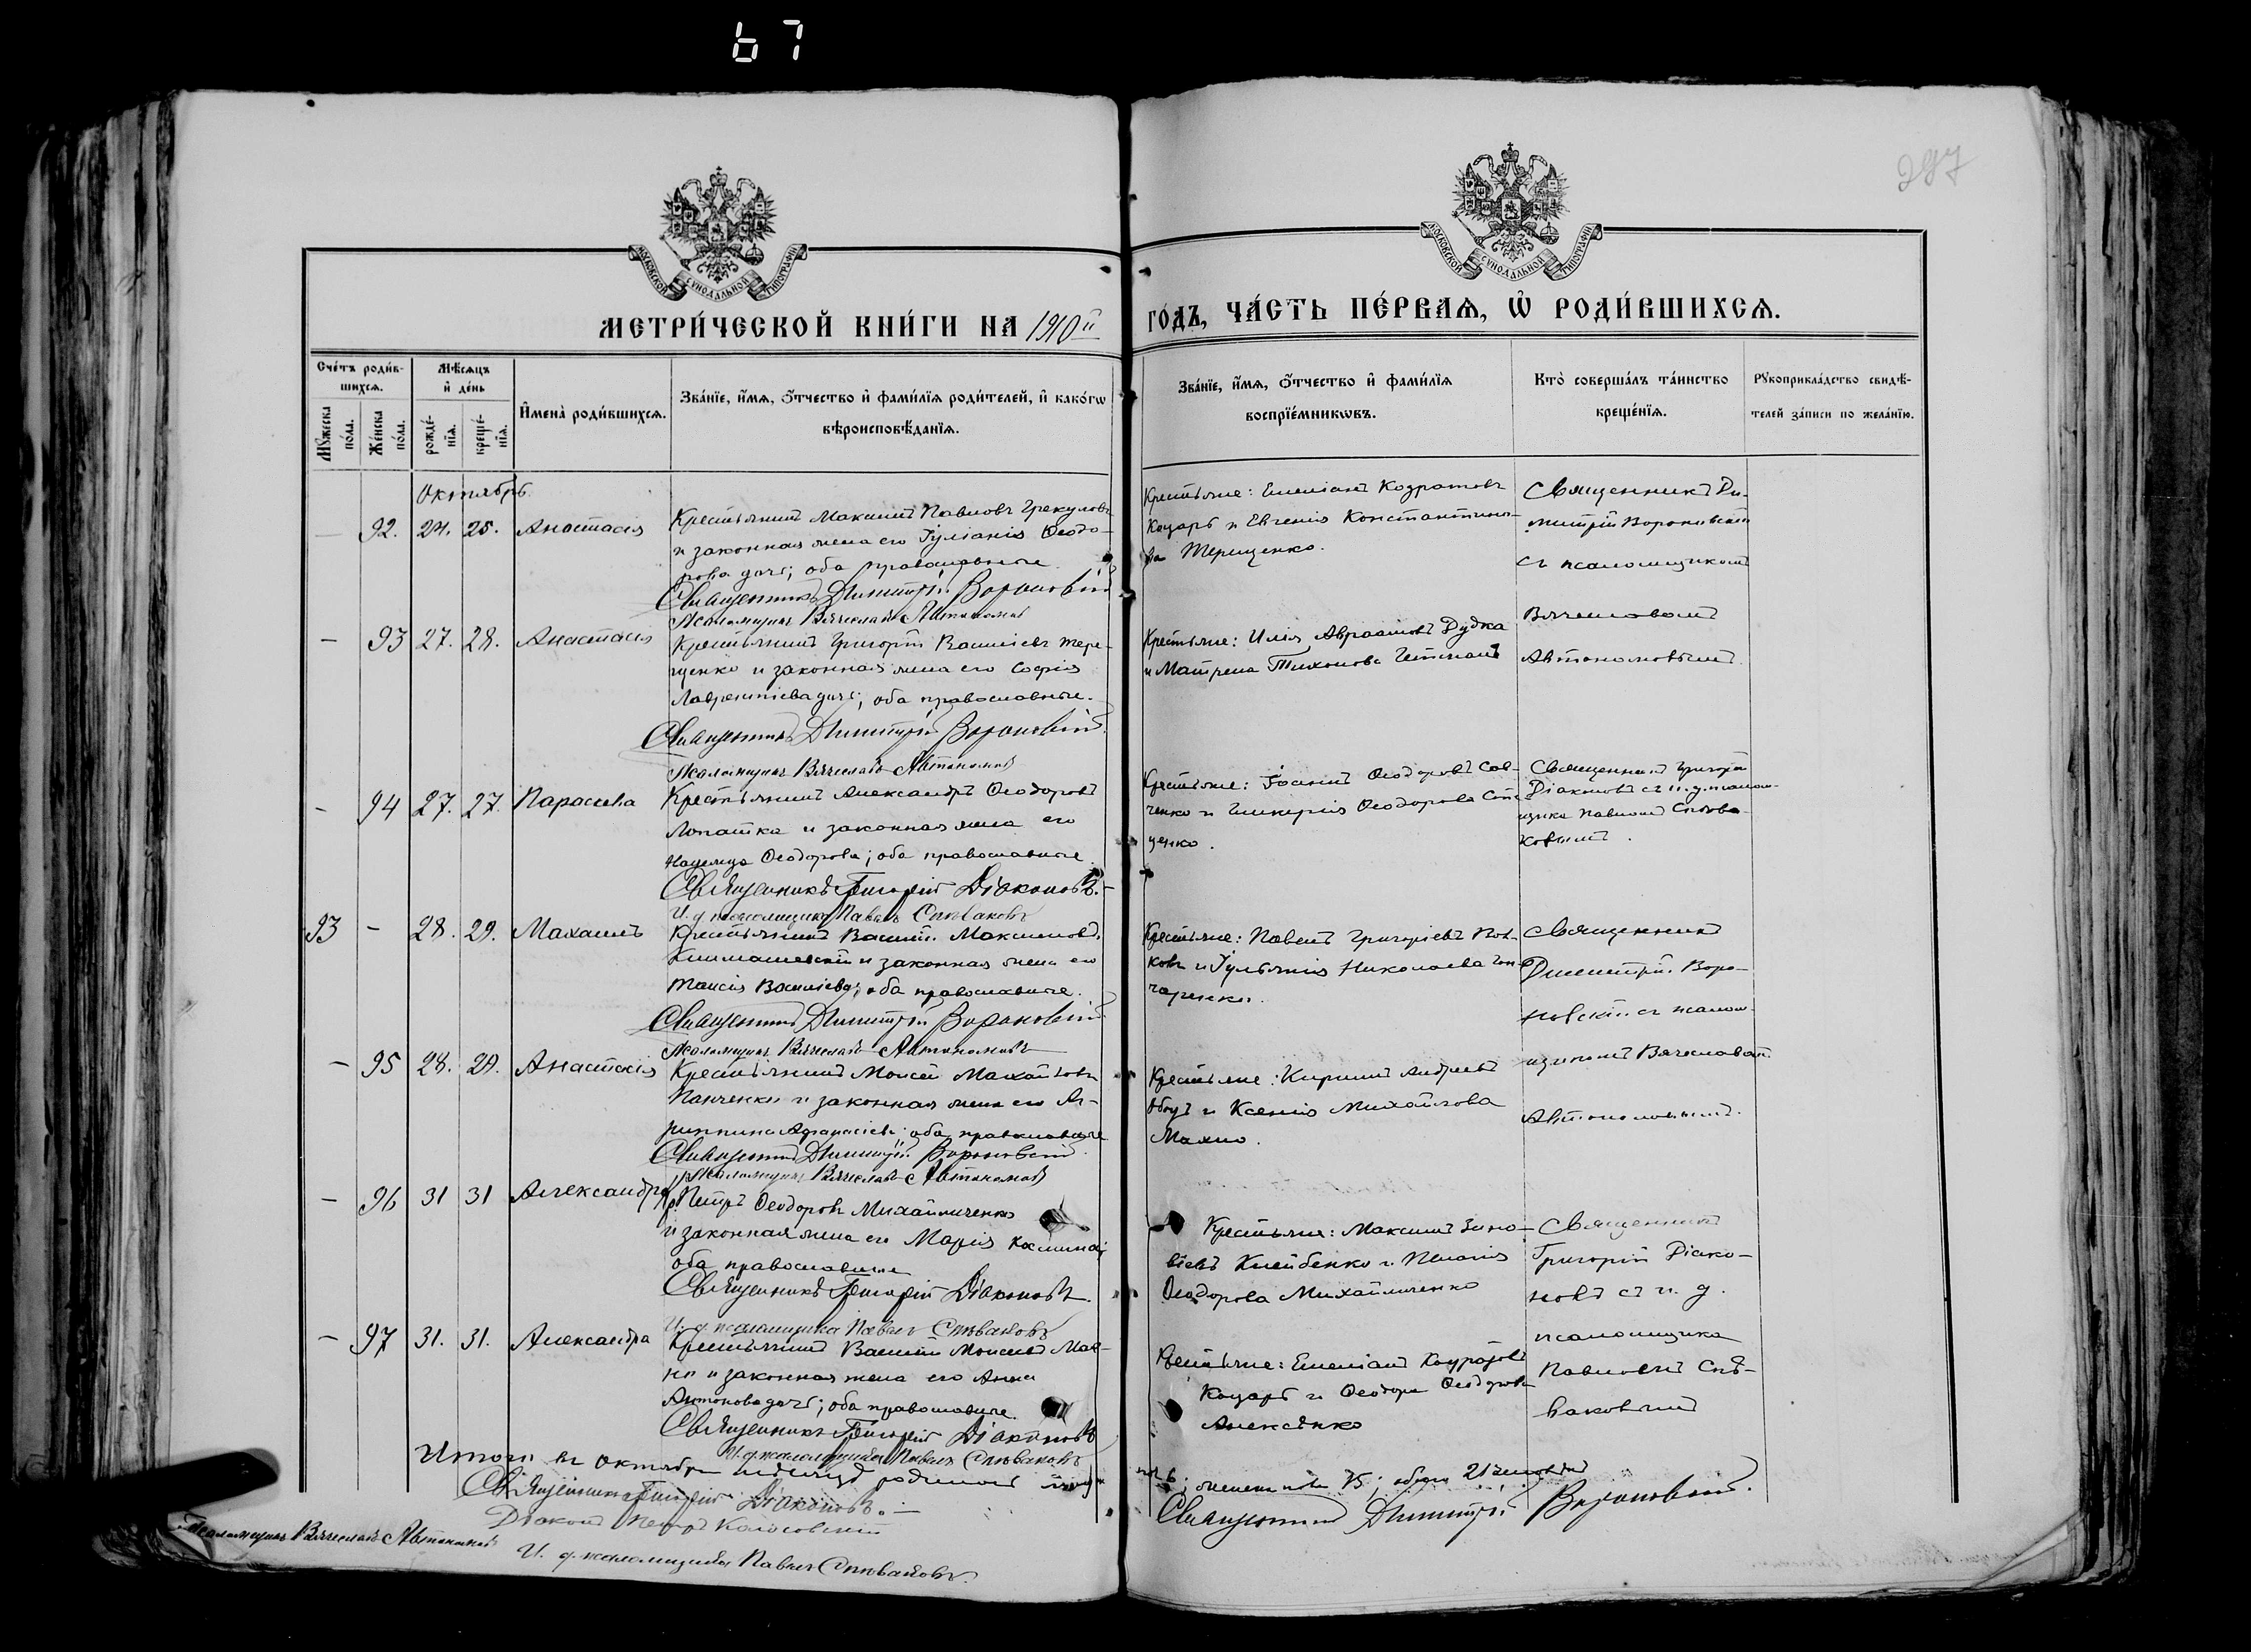 67
297
МОСКОВСКОЙ СѴНОДАЛЬНОЙ ТИПОГРАФІИ
МОСКОВСКОЙ СѴНОДАЛЬНОЙ ТИПОГРАФІИ
МЕТРИ́ЧЕСКОЙ КНИ́ГИ НА 1910й
ГО́ДЪ, ЧА́СТЬ ПЕ́РВАѦ, Ѡ҆ РОДИ́ВШИХСѦ.
Сче́тъ роди́в-
шихсѧ.
Мѹ́жеска по́ла.
Же́нска по́ла.
Мѣ́сѧцъ
и҆ де́нь
рожде́-
нїѧ.
креще́-
нїѧ.
И҆мена̀ роди́вшихсѧ.
Зва́нїе, и҆́мѧ, ѻ҆́тчество и҆ фами́лїѧ роди́телей, и҆ како́гѡ
вѣроисповѣ́данїѧ.
Зва́нїе, и҆́мѧ, ѻ҆́тчество и҆ фами́лїѧ
воспрїе́мникѡвъ.
Кто̀ соверша́лъ та́инство
креще́нїѧ.
Рѹкоприкла́дство свидѣ́-
телей за́писи по жела́нїю.
Октябрь
— 92. 24. 25. Анастасія
Крестьянинъ Максимъ Павловъ Грекуловъ
и законная жена его Іуліанія Ѳеодо-
рова дочь; оба православные.
Священникъ Димитрій Вороновскій
Псаломщикъ Вячеславъ Автономовъ
Крестьяне: Емеліанъ Кодратовъ
Коцарь и Евгенія Константино-
ва Терещенко.
Священникъ Ди-
митрій Вороновскій
съ псаломщикомъ
Вячеславомъ
Автономовымъ.
— 93 27. 28. Анастасія
Крестьянинъ Григорій Василіевъ Тере-
щенко и законная жена его Софія
Лаврентіева дочь; оба православные.
Священникъ Димитрій Вороновскій
Псаломщикъ Вячеславъ Автономовъ
Крестьяне: Илія Авраамовъ Дудка
и Матрена Тихонова Гетманъ
— 94 27. 27. Параскева
Крестьянинъ Александръ Ѳеодоровъ
Лопатка и законная жена его
Надежда Ѳеодорова; оба православные.
Священникъ Григорій Діаконовъ.—
И. д. псаломщика Павелъ Спѣваковъ
Крестьяне: Іоаннъ Ѳеодоровъ Сав-
ченко и Гликерія Ѳеодорова
ценко.
Священникъ Григорій
Діаконовъ съ и. д. псалом-
щика Павломъ Спѣва-
ковымъ.
93 — 28. 29. Михаилъ
Крестьянинъ Василій Максимовъ
и законная жена его
Таисія Василіева; оба православные.
Священникъ Димитрій Вороновскій
Псаломщикъ Вячеславъ Автономовъ
Крестьяне: Павелъ Григоріевъ Вол-
ковъ и Іульянія Николаева Гон-
чаренко.
Священникъ
Димитрій Воро-
новскій съ псалом-
щикомъ Вячеславомъ
Автономовымъ.
— 95 28. 29. Анастасія
Крестьянинъ Моисей Михайловъ
Панченко и законная жена его Аг-
риппина Аѳанасіева; оба православные
Священникъ Димитрій Вороновскій.
Псаломщикъ Вячеславъ Автономовъ
Крестьяне: Кириллъ Андреевъ
и Ксенія Михайлова
Махно.
— 96 31 31 Александра
Кр. Петръ Ѳеодоровъ Михайличенко
и законная жена его Марія Космина;
оба православные
Священникъ Григорій Діаконовъ.
И. д. псаломщика Павелъ Спѣваковъ
Крестьяне: Максимъ Зино-
віевъ Клейбенко и Пелагія
Ѳеодорова Михайличенко
Священникъ
Григорій Діако-
новъ съ и. д.
псаломщика
Павломъ Спѣ-
ваковымъ
— 97 31. 31. Александра
Крестьянинъ Василій Моисеевъ Мах-
но и законная жена его Анна
Антонова дочь; оба православные.
Священникъ Григорій Діаконовъ
И. д. псаломщика Павелъ Спѣваковъ
Крестьяне: Емеліанъ Кодратовъ
Коцарь и Ѳеодора Ѳеодорова
Алексѣнко
Итого въ октябрѣ мѣсяцѣ родилось
6; женска пола 15; обоего 21 человѣкъ
Священникъ Григорій Діаконовъ.—
Священникъ Димитрій Вороновскій.
Діаконъ Петръ Колосовскій
Псаломщикъ Вячеславъ Автономовъ
И. д. псаломщика Павелъ Спѣваковъ.